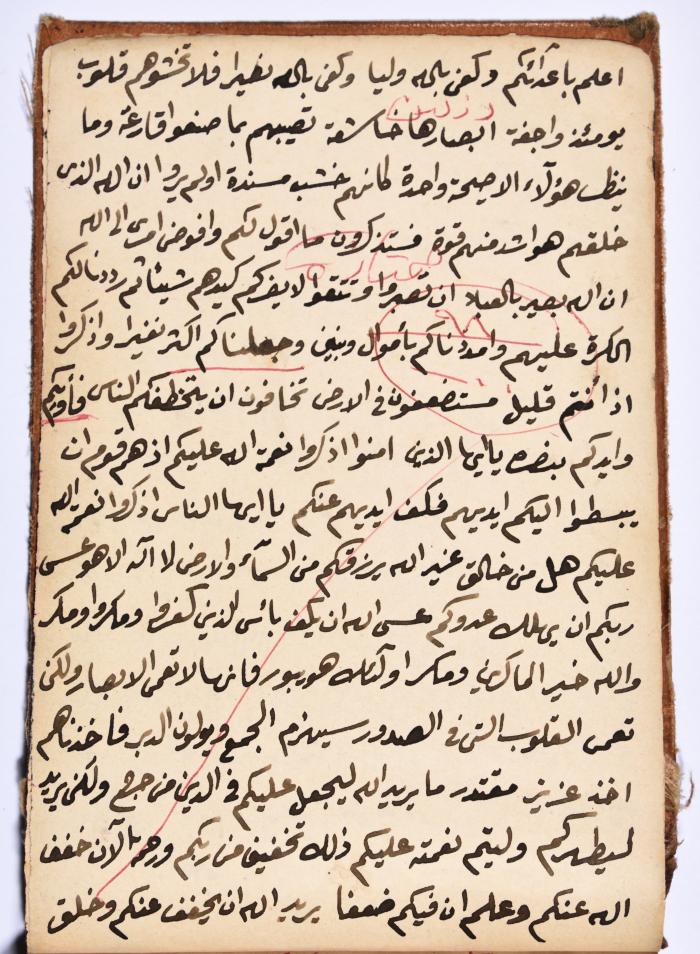 اعلم باعدائكم وكفى بالله وليا وكفى بالله نصيرا فلا تخشوهم قلوب
يومئذ واجفة ابصارها خاشعة تصيبهم بما صنعوا قارعة وما
ينظر هؤلآء الا صيحة واحدة كانهم خشب مسندة اولم يروا ان الله الذى
خلقهم هو اشد منهم قوة فستذكرون ما اقول لكم وافوض امرى الى الله
ان الله بصير بالعباد ان تصبروا وتتقوا لا يضركم كيدهم شيئا ثم رددنا لكم
الكرة عليهم وامددناكم بأموال وبنين وجعلناكم اكثر نفيرا واذكروا
اذ أنتم قليل مستضعفون في الارض تخافون ان يتخطفكم الناس فأويكم
وايدكم بنصره ياايها الذين امنوا اذكروا نعمة الله عليكم اذ هم قوم ان
يبسطوا اليكم ايديهم فكف ايديهم عنكم يا ايها الناس اذكروا نعمة الله
عليكم هل من خالق غير الله يرزقكم من السمآء والارض لا اله الا هو عسى
ربكم ان يهلك عدوكم عسى الله ان يكف بائس الذين كفروا ومكروا ومكر
والله خير الماكرين ومكر اولئك هو يبور فانها لا تعمى الابصار ولكن
تعمى القلوب التى في الصدور سيهزم الجمع ويولون الدبر فاخذناهم
اخذ عزيز مقتدر ما يريد الله ليجعل عليكم في الدين من حرج ولكن يريد
ليطهركم وليتم نعمته عليكم ذلك تخفيف من ربكم ورحمة الآن خفف
الله عنكم وعلم ان فيكم ضعفا يريد الله ان يخفف عنكم وخلق